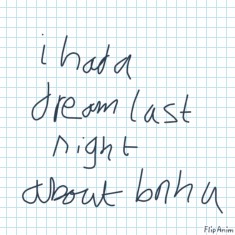 i had a
dream last
night
about bnha
FlipAnim